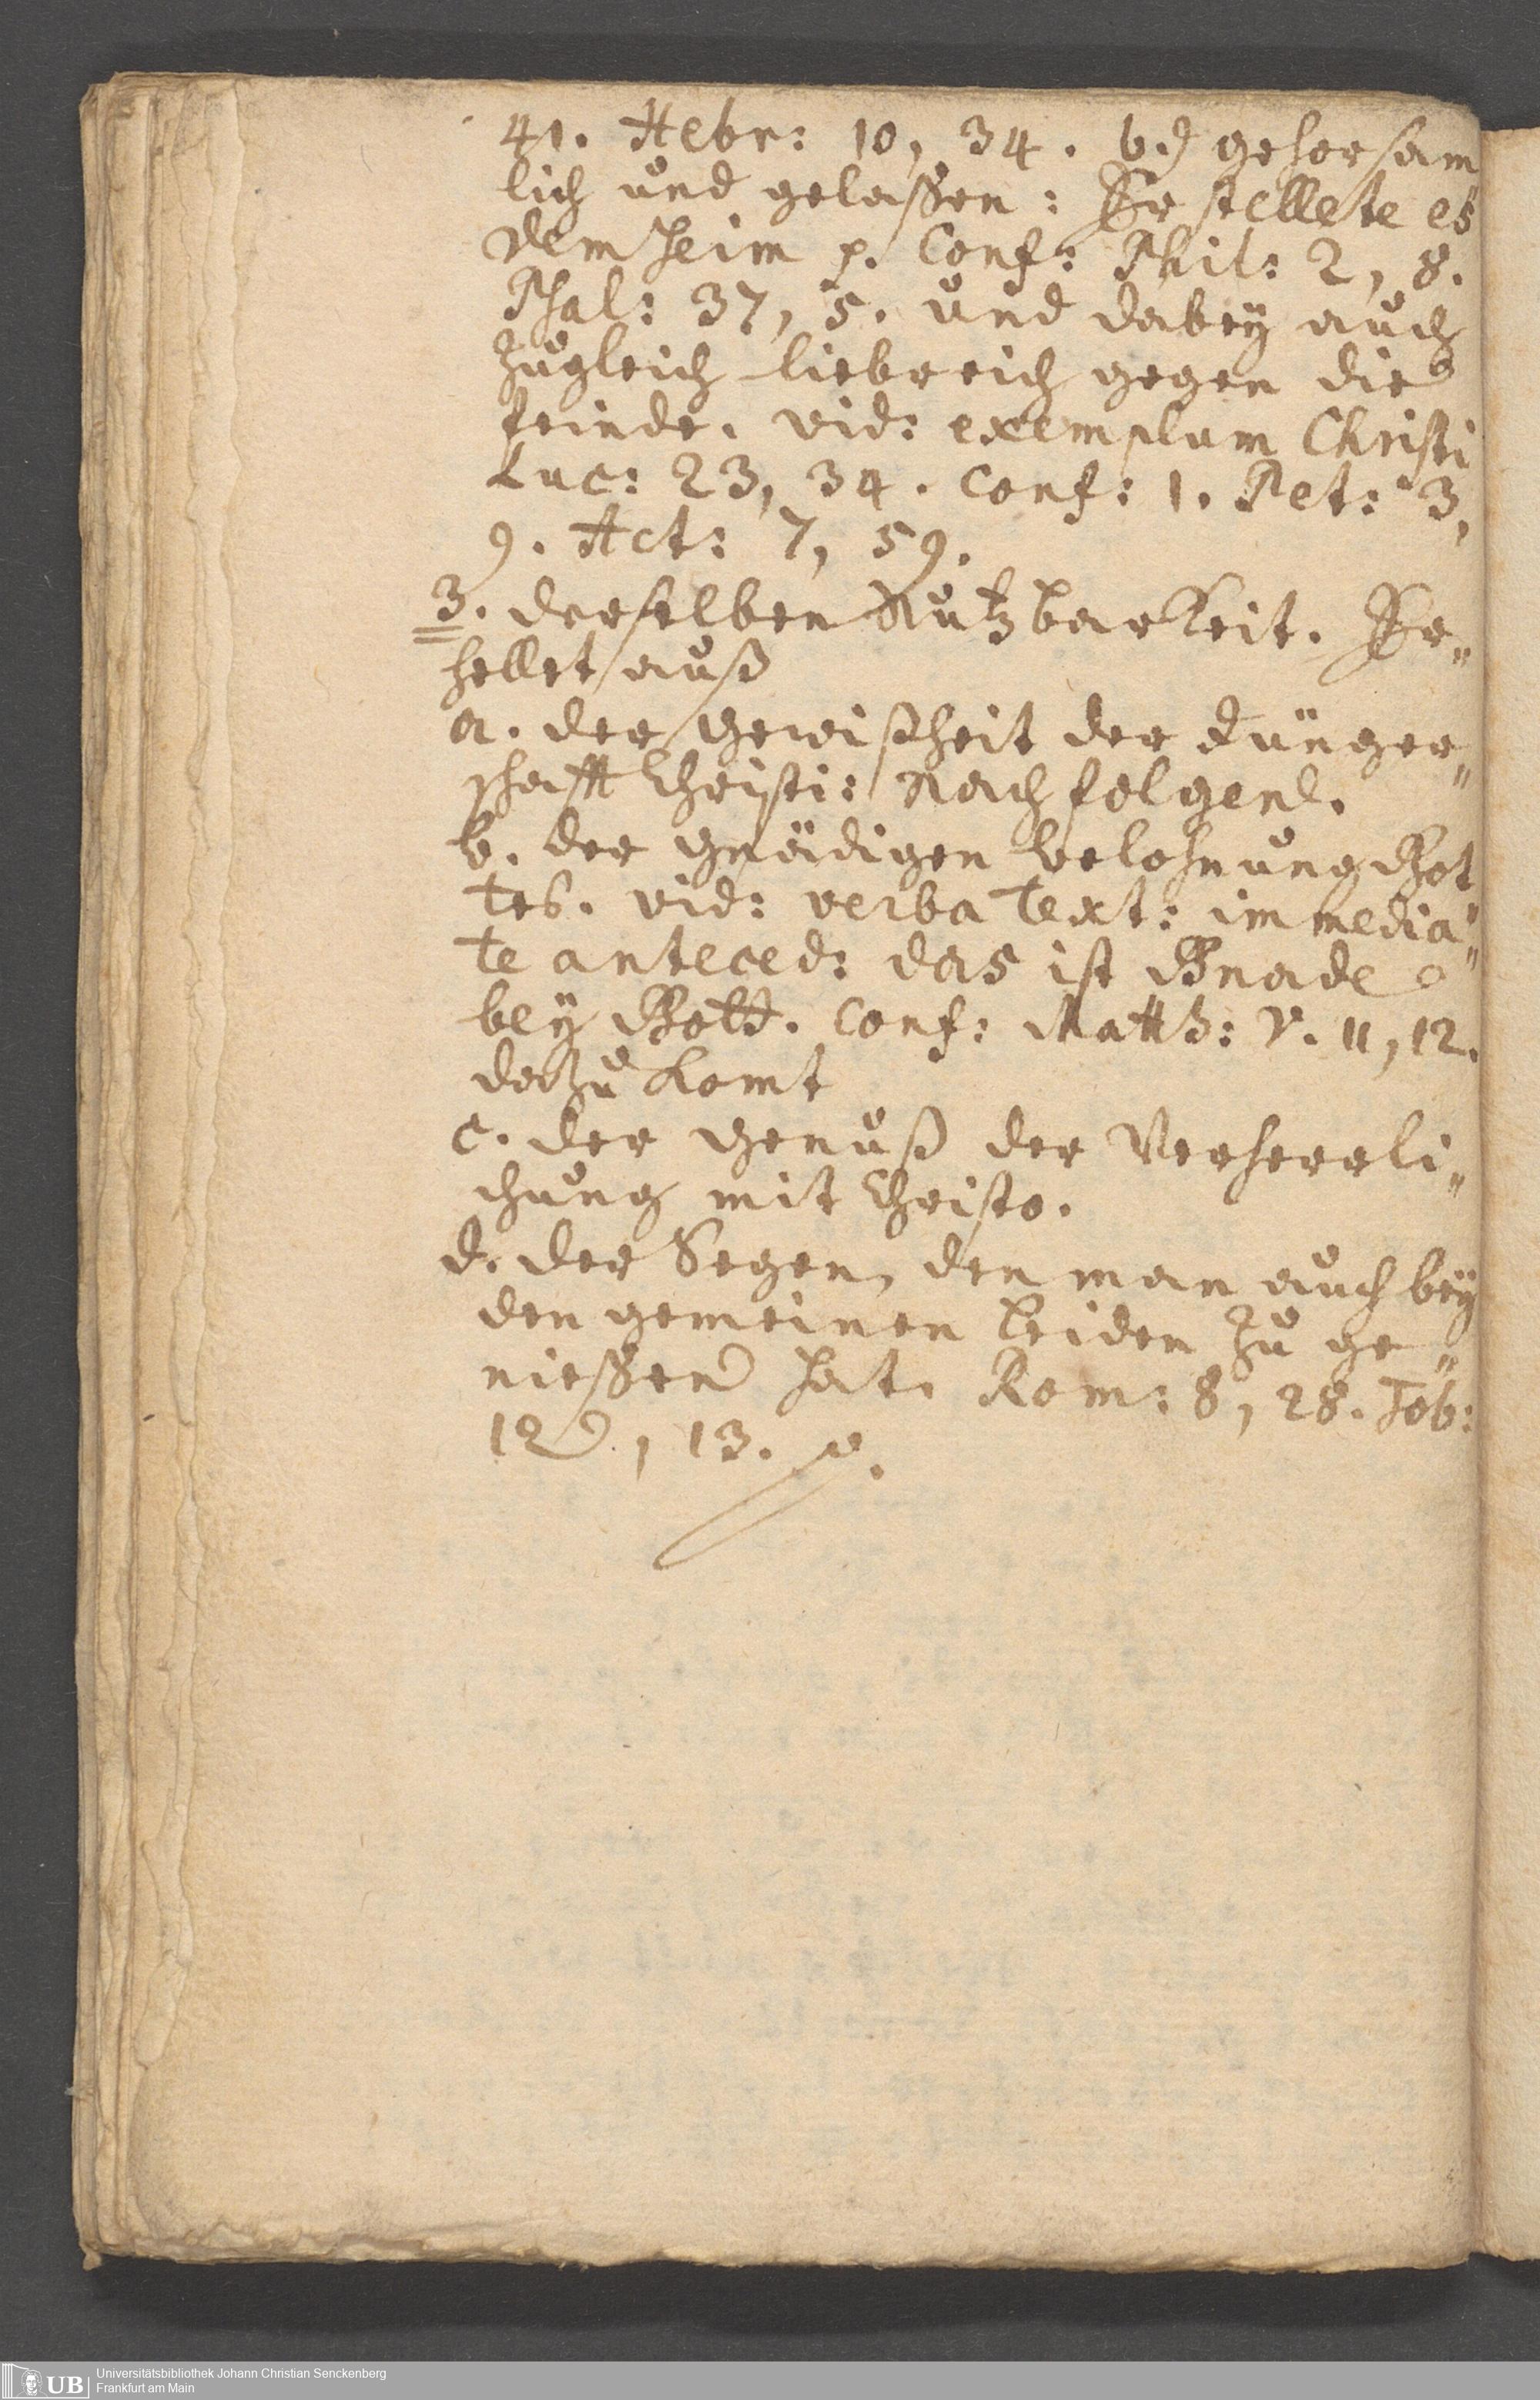 41. Hebr: 10, 34. b.) gehorsam
lich und gelaßen: Er stellete es
dem heim p. Conf: Phil: 2, 8.
Psal: 37, 5. und dabey auch
zugleich liebreich gegen die
feinde. vid: exemplum Christi
Luc: 23, 34. conf: 1. Pet: 3,
9. Act: 7, 59.
3. derselben Nutzbarkeit. Er„
hellet auß
a. der gewißheit der Jünger„
schafft Christi: Nachfolgen.
b. der gnädigen belohnung Got
tes. vid: verba text: immedia„
te anteced: das ist Gnade
bey Gott. Conf: Matth: V. 11, 12.
dazu komt
c. der genuß der Verherrli„
chung mit Christo.
d. der Segen, den man auch bey
den gemeinen leiden zu ge„
nießen hat. Rom: 8, 28. Tob:
12, 13.
UB Universitätsbibliothek Johann Christian Senckenberg
Frankfurt am Main